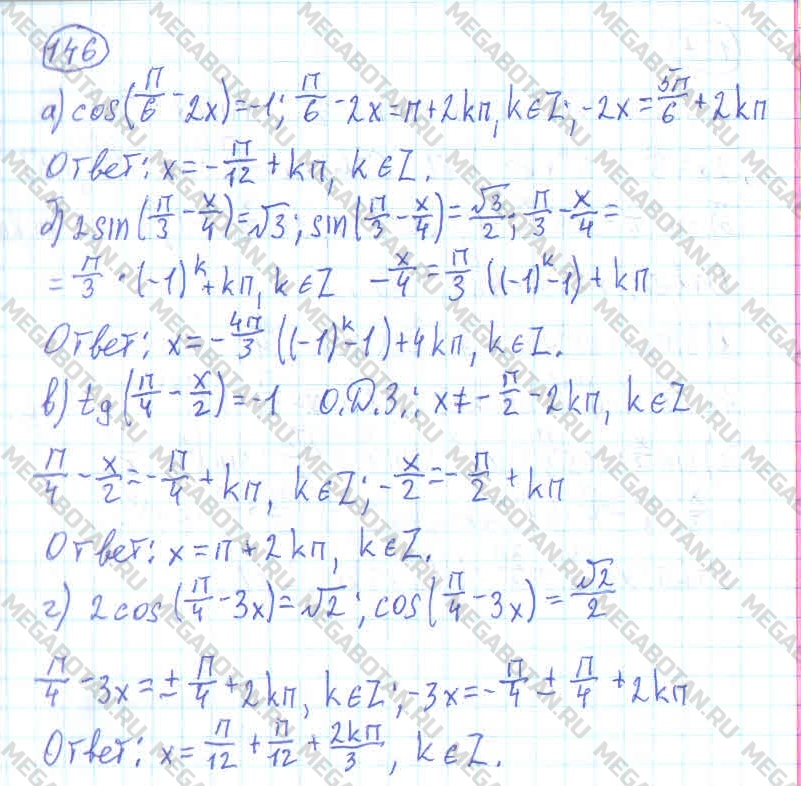 146
а) cos(π/6 - 2x) = -1; π/6 - 2x = π + 2kπ, k∈Z; -2x = 5π/6 + 2kπ
Ответ: x = -π/12 + kπ, k∈Z.
б) 2sin(π/3 - x/4) = √3; sin(π/3 - x/4) = √3/2; π/3 - x/4 =
= π/3 · (-1)^k + kπ, k∈Z -x/4 = π/3 ((-1)^k - 1) + kπ
Ответ: x = -4π/3 ((-1)^k - 1) + 4kπ, k∈Z.
в) tg(π/4 - x/2) = -1 О.Д.З.: x ≠ -π/2 - 2kπ, k∈Z
π/4 - x/2 = -π/4 + kπ, k∈Z; -x/2 = -π/2 + kπ
Ответ: x = π + 2kπ, k∈Z.
г) 2cos(π/4 - 3x) = √2; cos(π/4 - 3x) = √2/2
π/4 - 3x = ± π/4 + 2kπ, k∈Z; -3x = -π/4 ± π/4 + 2kπ
Ответ: x = π/12 ± π/12 + 2kπ/3, k∈Z.
MEGABOTAN.RU